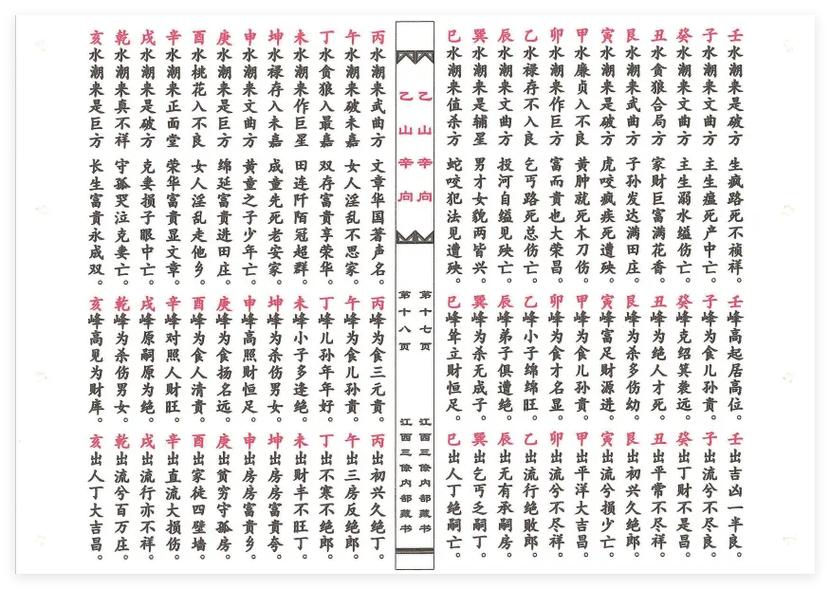 壬水潮来是破方 生疯路死不祯祥。
子水潮来文曲方 主生瘟死产中亡。
癸水潮来文曲方 主生溺水缢伤亡。
丑水贪狼合局方 家财巨富满花香。
艮水潮来武曲方 子孙发达满田庄。
寅水潮来是破方 虎咬疯疾死遭殃。
甲水廉贞入不良 黄肿就死木刀伤。
卯水潮来作巨方 富而贵也大荣昌。
乙水禄存不入良 乞丐路死总伤亡。
辰水潮来文曲方 投河自缢见殃亡。
巽水潮来是辅星 男才女貌两皆兴。
巳水潮来值杀方 蛇咬犯法见遭殃。
壬峰高起居高位。
子峰为食儿孙贵。
癸峰克绍箕裘远。
丑峰为绝人才死。
艮峰为杀多伤幼。
寅峰富足财源进。
甲峰为食儿孙贵。
卯峰为食才名显。
乙峰小子绵绵旺。
辰峰弟子俱遭绝。
巽峰为杀无成子。
巳峰耸立财恒足。
壬出吉凶一半良。
子出流兮不尽良。
癸出丁财不是昌。
丑出平常不尽祥。
艮出初兴久绝郎。
寅出流兮损少亡。
甲出平洋大吉昌。
卯出流兮不尽祥。
乙出流行绝败郎。
辰出无有承嗣房。
巽出乞丐乏嗣丁。
巳出人丁绝嗣亡。
乙山辛向 第十七页 江西三僚内部藏书
乙山辛向 第十八页 江西三僚内部藏书
丙水潮来武曲方 文章华国著声名。
午水潮来破未嘉 女人淫乱不思家。
丁水贪狼入最嘉 双存富贵享荣华。
未水潮来作巨星 田连阡陌冠超群。
坤水禄存入未嘉 成童先死老安家。
申水潮来文曲方 黄童之子少年亡。
庚水潮来是巨方 绵延富贵进田庄。
酉水桃花入不良 女人淫乱走他乡。
辛水潮来正面堂 荣华富贵显文章。
戌水潮来是破方 克妻损子眼中亡。
乾水潮来真不祥 守孤哭泣克妻亡。
亥水潮来是巨方 长生富贵永成双。
丙峰为食三元贵。
午峰为食儿孙贵。
丁峰儿孙年年好。
未峰小子多逢绝。
坤峰为杀伤男女。
申峰高照财恒足。
庚峰为食扬名远。
酉峰为食人清贵。
辛峰对照人财旺。
戌峰原嗣原为绝。
乾峰为杀伤男女。
亥峰高见为财库。
丙出初兴久绝丁。
午出三房反绝郎。
丁出不寒不绝郎。
未出财丰不旺丁。
坤出房房富贵夸。
申出房房富贵乡。
庚出贫穷守孤房。
酉出家徒四壁墙。
辛出直流大损伤。
戌出流行亦不祥。
乾出流兮百万庄。
亥出人丁大吉昌。